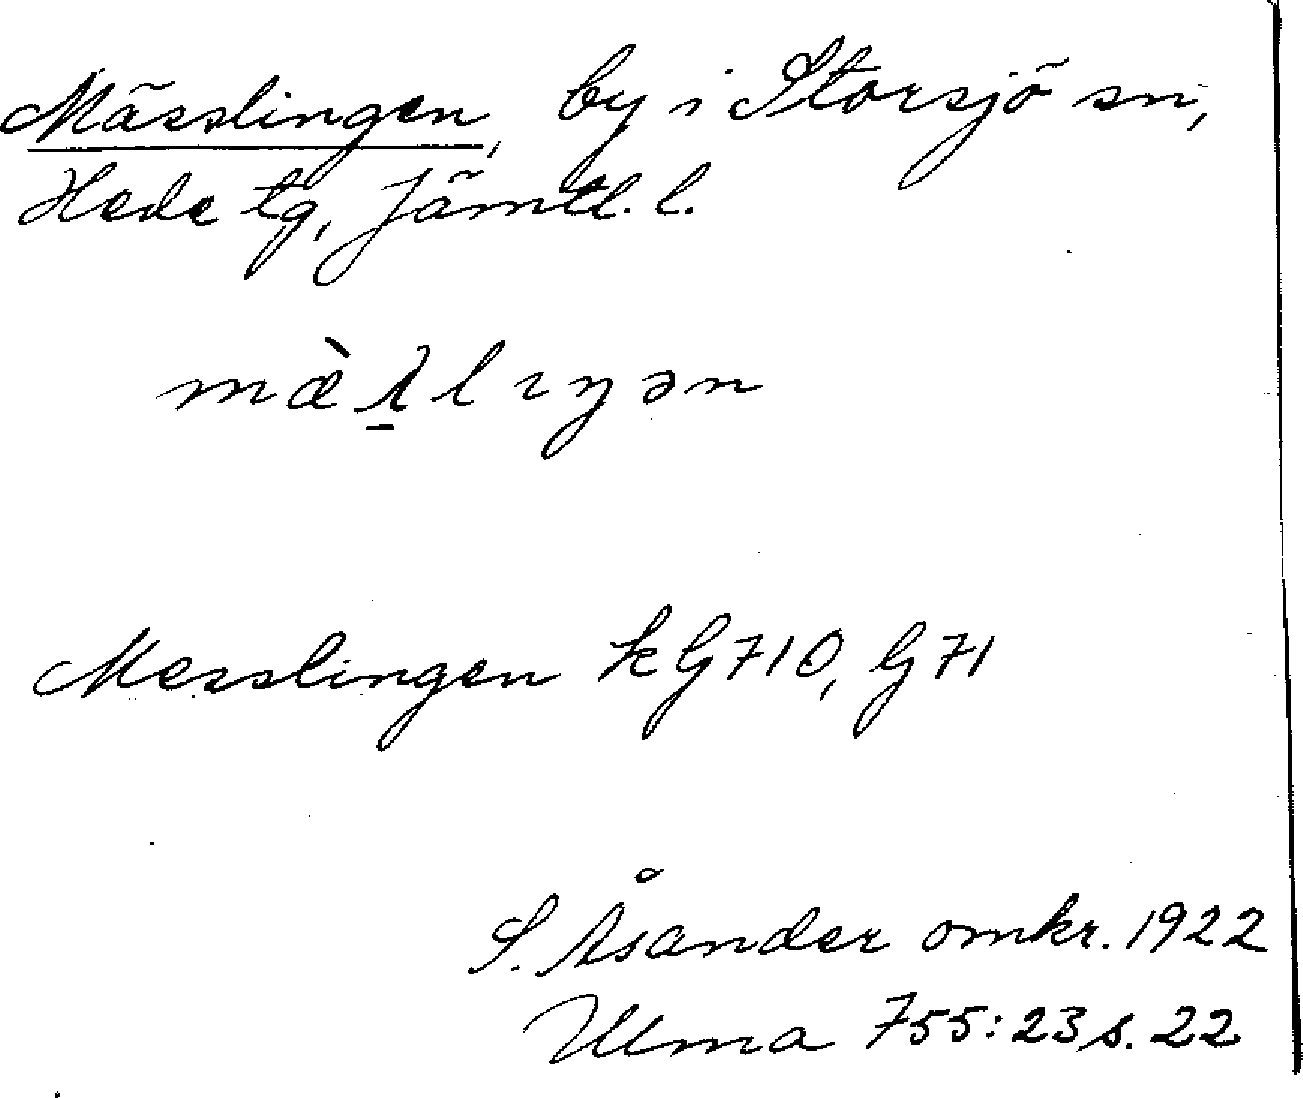 Mässlingen, by i Storsjö sn,
Hede tg, Jämtl. l.
Messlingen kG710, G71
S. Åsander omkr. 1922
Ulma 755:23 s. 22